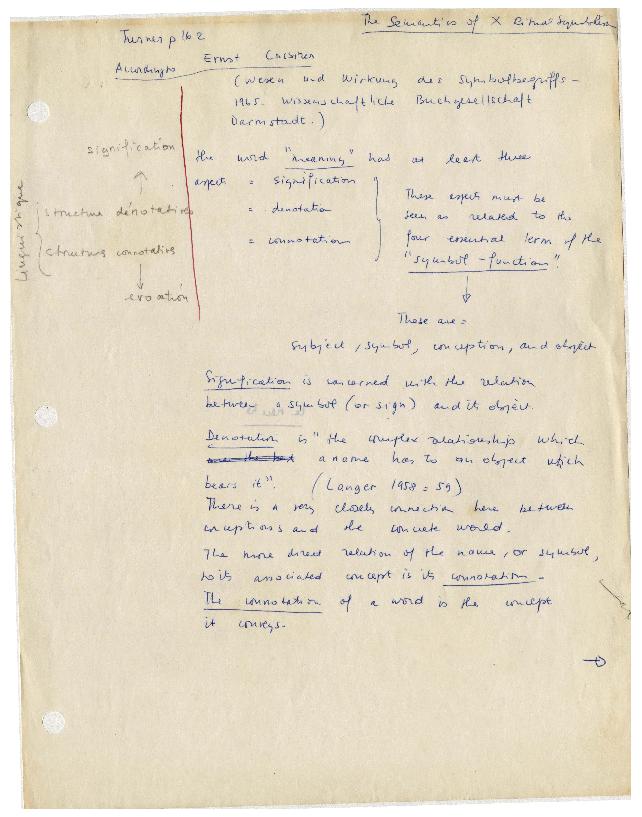 The Semantics of X Ritual Symbolism
Turner p 162
According to Ernst Cassirer
(Wesen und Wirkung des Symbolbegriffs -
1965. Wissenschaftliche Buchgesellschaft
Darmstadt.)
signification
the word "meaning" has at least three
aspects = signification
= denotation
= connotation
These aspects must be
seen as related to the
four essential term of the
"symbol-function".
Linguistique
structure dénotatives
structures connotatives
evocation
These are =
subject, symbol, conception, and object
Signification is concerned with the relation
between a symbol (or sign) and its object.
Denotation is "the complex relationship which
a name has to an object which
bears it". (Langer 1958 = 59)
There is a very closely connection here between
conceptions and the concrete world.
The more direct relation of the name, or symbol,
to its associated concept is its connotation -
The connotation of a word is the concept
it conveys.
→